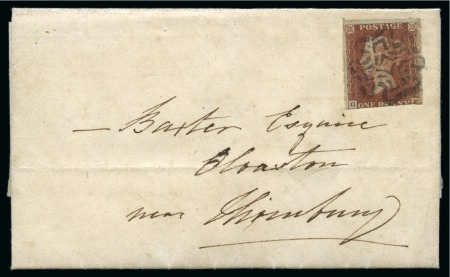 POSTAGE
ONE PENNY
— Baxter Esquire
Olvaston
near Thornbury